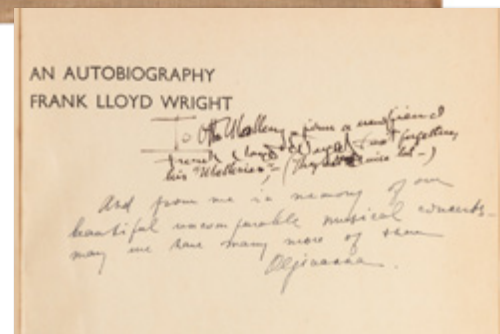 AN AUTOBIOGRAPHY
FRANK LLOYD WRIGHT
To Otto from a new friend
Frank Lloyd Wright not forgetting
his
And from me in memory of our
beautiful uncomparable musical concerts -
may we have many more of them
Olgivanna.